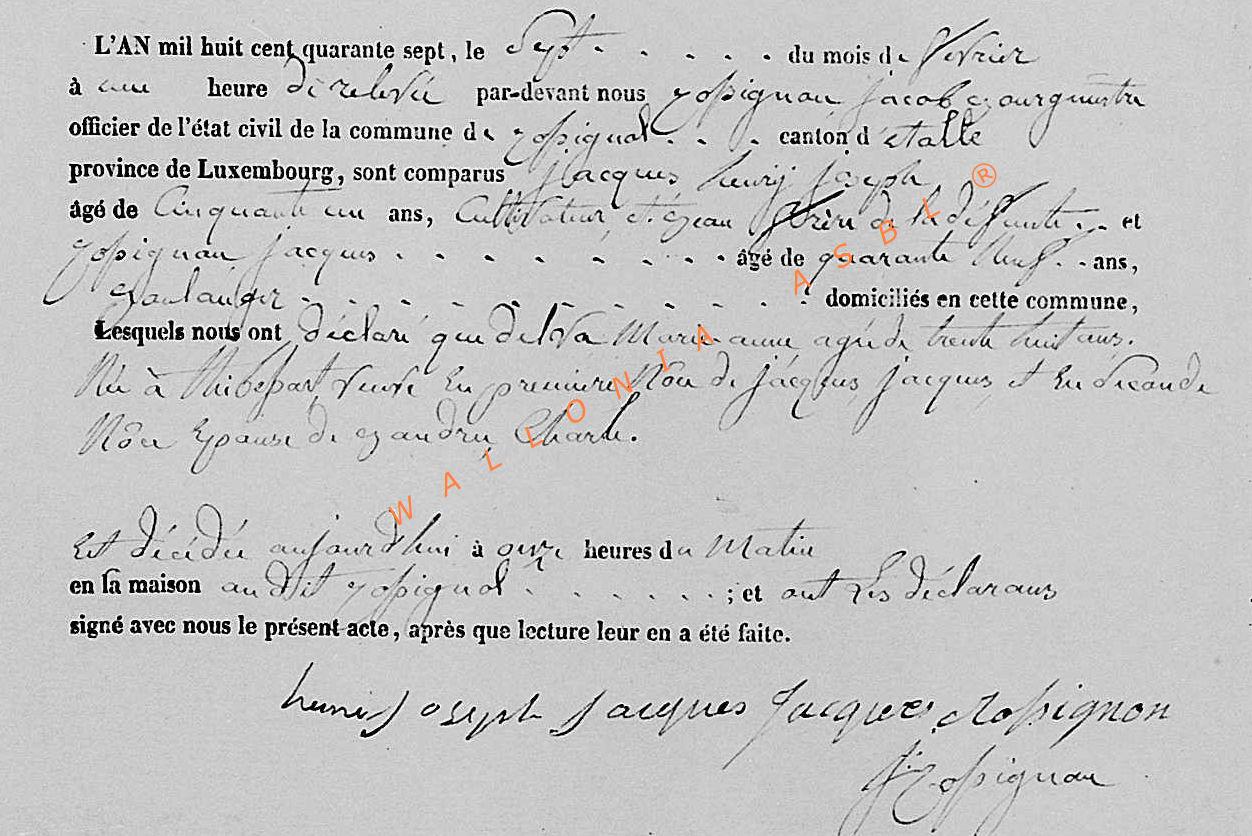 L'AN mil huit cent quarante sept, le Sept . . . . . du mois de février
à une heure de relevée par-devant nous Rossignon Jacob Bourgmestre
officier de l'état civil de la commune de Rossignol . . . canton d'étalle
province de Luxembourg, sont comparus Jacques henry Joseph
âgé de Cinquante un ans, Cultivateur, et Beau frère de la défunte . . et
Rossignon Jacques . . . . . . . . . âgé de quarante neuf . . ans,
Boulanger . . . . . . . . . . . domiciliés en cette commune,
Lesquels nous ont déclaré que Marie anne agée de trente huit ans.
Née à thibessart veuve En premiere Nôce de Jacques Jacques et En Seconde
Nôce Epouse de Charle.
Est décédée aujourd'hui à onze heures du Matin
en sa maison audit Rossignol . . . . . . ; et ont Les déclarans
signé avec nous le présent acte, après que lecture leur en a été faite.
henri Joseph Jacques Jacques Rossignon
J. Rossignon
WALLONIA ASBL ®